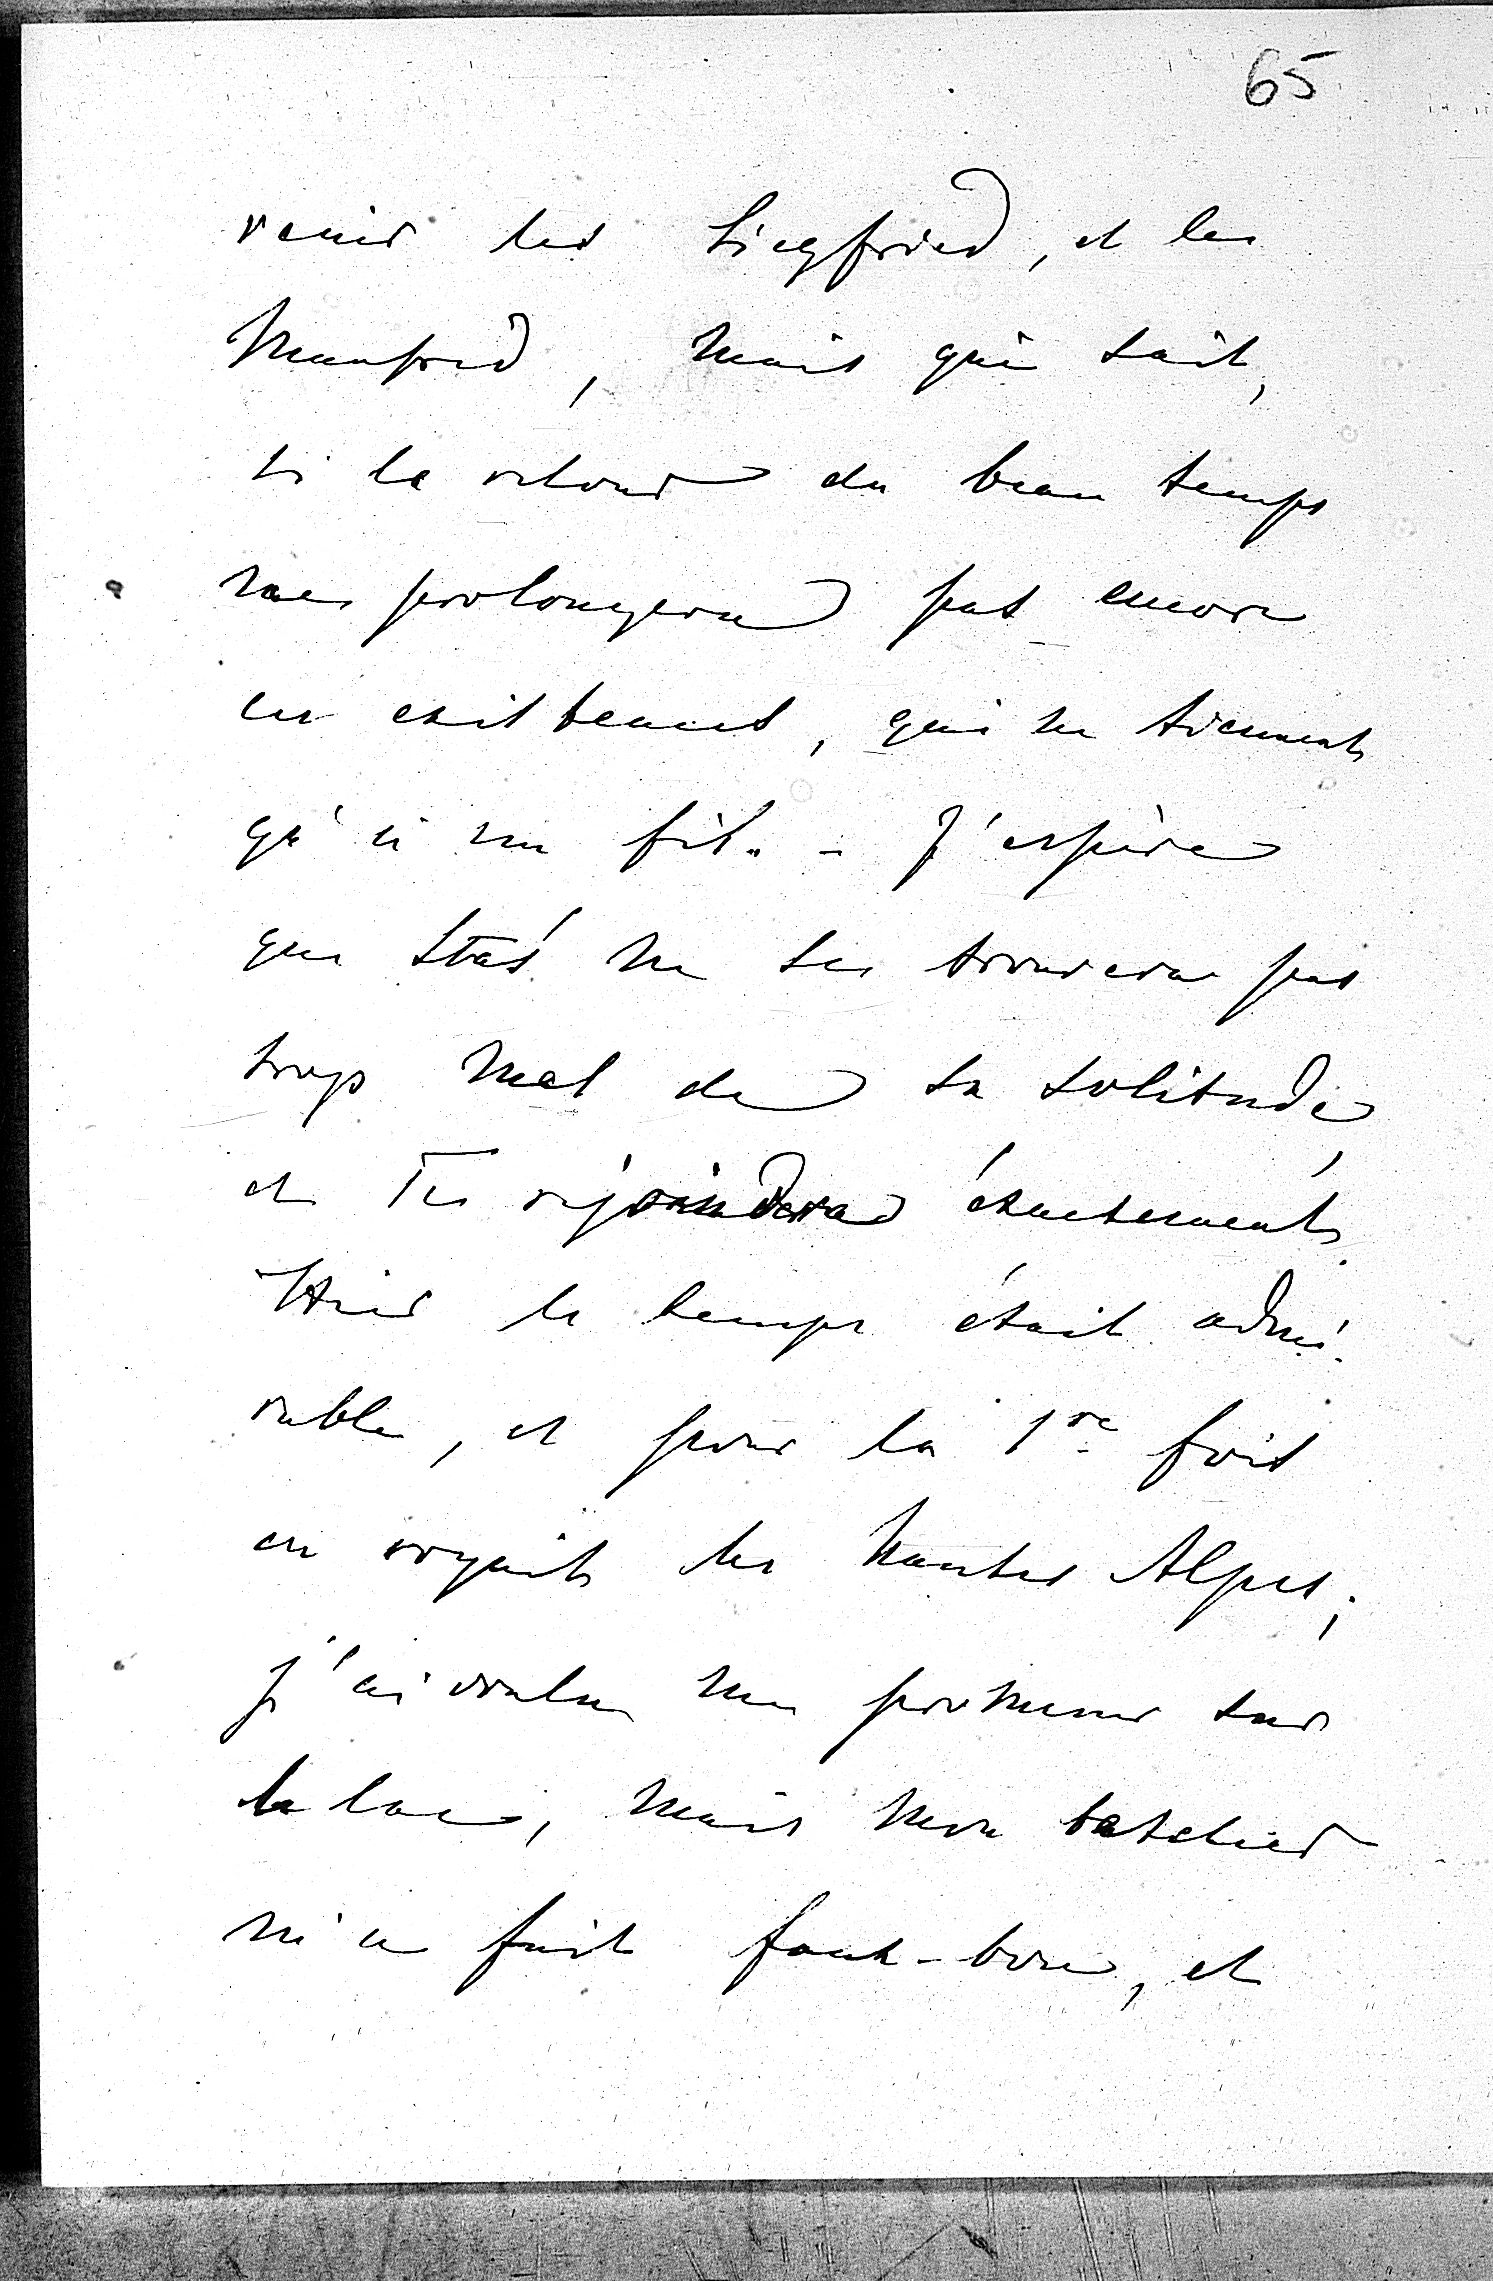 65
venir les Siegfried, et les
Manfred, mais qui sait,
si le retour du beau temps
ne prolongera pas encore
ces existences, qui ne tiennent
qu'à un fil.. – J'espère
que Staś ne se trouvera pas
trop mal de sa solitude,
et Te rejoindera exactement.
Hier le temps était admi-
rable, et pour la 1re fois
on voyait les hautes Alpes;
j'ai voulu me promener sur
le lac, mais mon batelier
m'a fait faux-bon, et